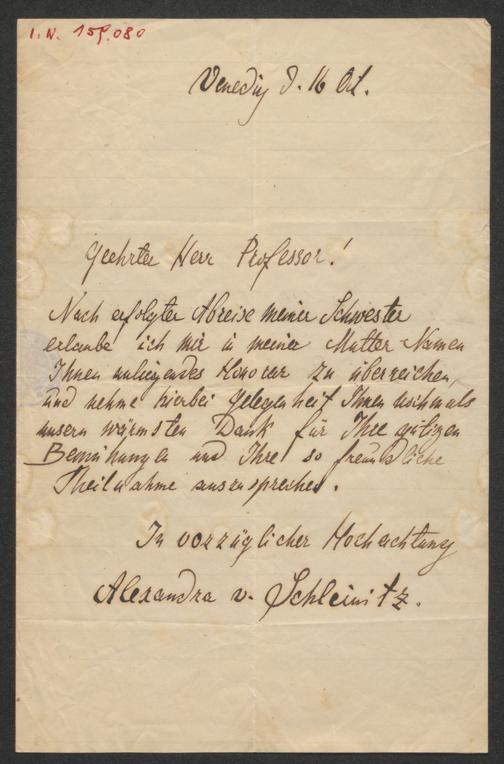 I.N. 159.080
Venedig d. 16 Oct.
Geehrter Herr Professor!
Nach erfolgter Abreise meiner Schwester
erlaube ich mir in meiner Mutter Namen
Ihnen anliegendes Honorar zu überreichen,
und nehme hierbei Gelegenheit Ihnen nochmals
unsern wärmsten Dank für Ihre gütigen
Bemühungen und Ihre so freundliche
Theilnahme auszusprechen.
In vorzüglicher Hochachtung
Alexandra v. Schleinitz.